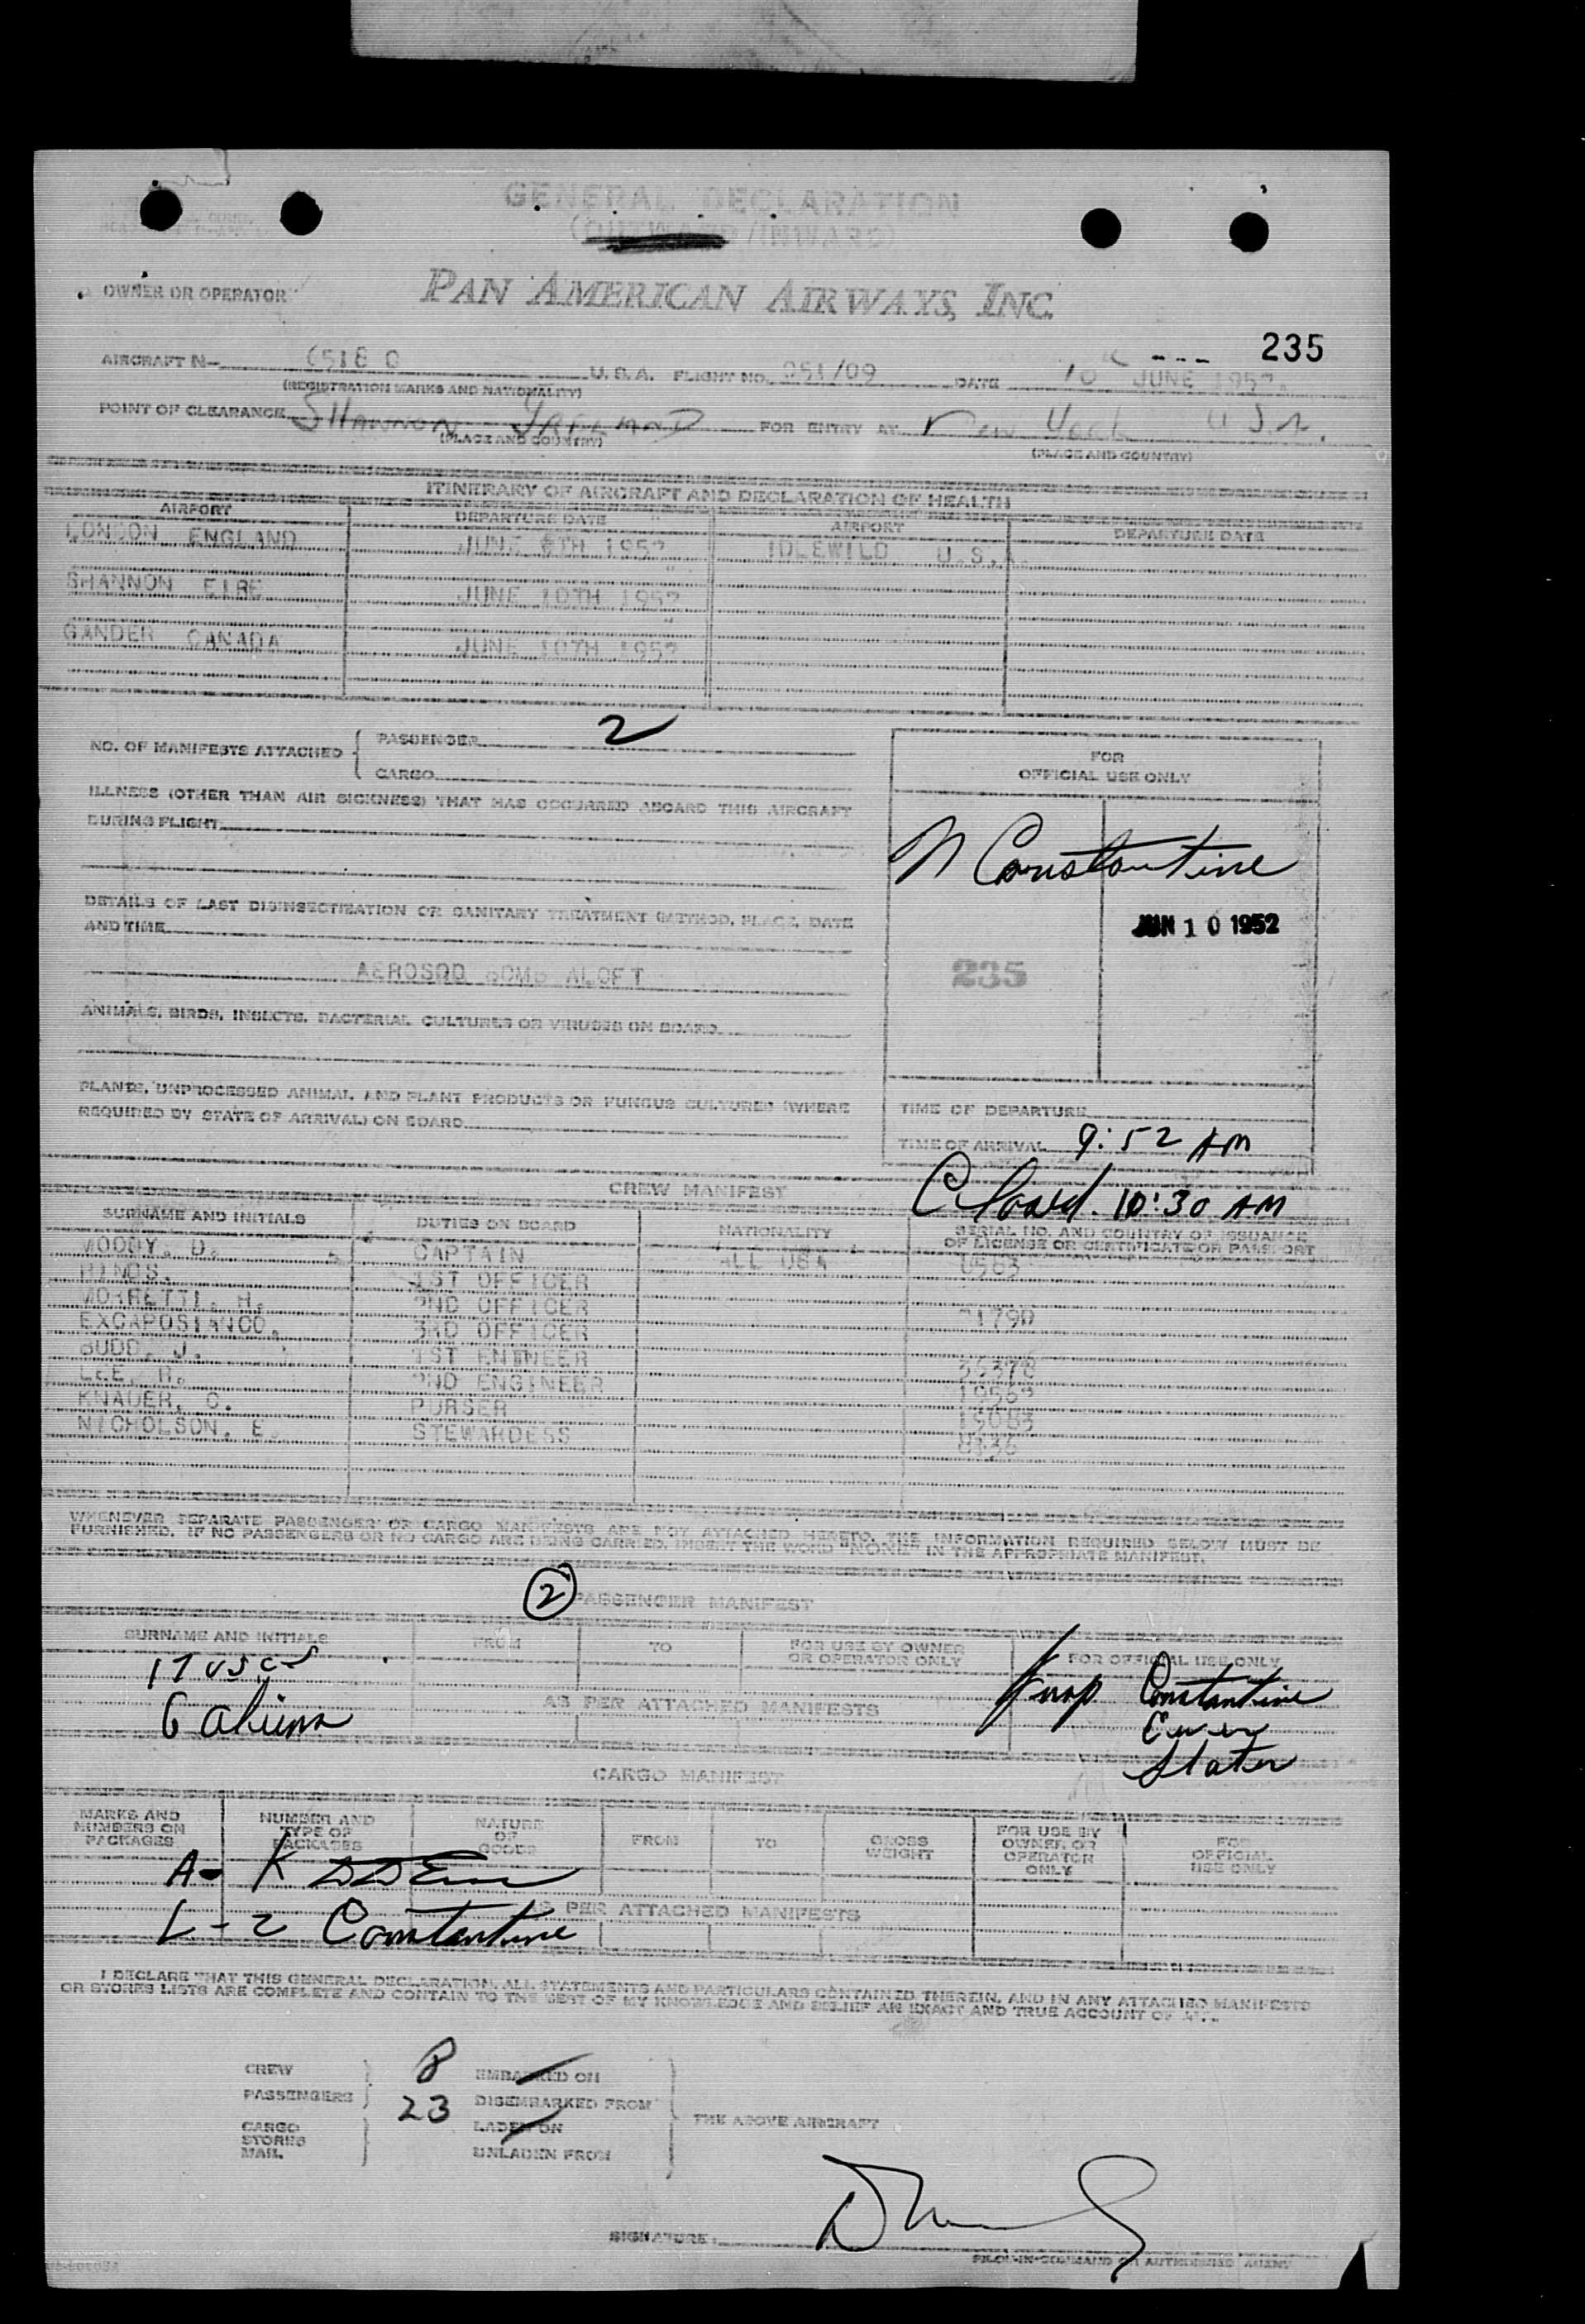 GENERAL DECLARATION
(OUTWARD/INWARD)
OWNER OR OPERATOR PAN AMERICAN AIRWAYS, INC.
235
AIRCRAFT N— U.S.A. FLIGHT NO. 051/09 DATE 10 JUNE 1952.
(REGISTRATION MARKS AND NATIONALITY)
POINT OF CLEARANCE SHANNON IRELAND FOR ENTRY AT New York U.S.A.
(PLACE AND COUNTRY) (PLACE AND COUNTRY)
ITINERARY OF AIRCRAFT AND DECLARATION OF HEALTH
AIRPORT DEPARTURE DATE AIRPORT DEPARTURE DATE
LONDON ENGLAND JUNE 1952 IDLEWILD U.S.A.
SHANNON EIRE JUNE 10TH 1952
GANDER CANADA JUNE 10TH 1952
NO. OF MANIFESTS ATTACHED { PASSENGER 2
CARGO
ILLNESS (OTHER THAN AIR SICKNESS) THAT HAS OCCURRED ABOARD THIS AIRCRAFT
DURING FLIGHT
DETAILS OF LAST DISINSECTIZATION OR SANITARY TREATMENT (METHOD, PLACE, DATE
AND TIME
AEROSOD BOMB ALOFT
ANIMALS, BIRDS, INSECTS, BACTERIAL CULTURES OR VIRUSES ON BOARD
PLANTS, UNPROCESSED ANIMAL AND PLANT PRODUCTS OR FUNGUS CULTURES (WHERE
REQUIRED BY STATE OF ARRIVAL) ON BOARD
FOR
OFFICIAL USE ONLY
N Constantine
JUN 10 1952
235
TIME OF DEPARTURE
TIME OF ARRIVAL 9:52 AM
Cleared. 10:30 AM
CREW MANIFEST
SURNAME AND INITIALS DUTIES ON BOARD NATIONALITY SERIAL NO. AND COUNTRY OF ISSUANCE
OF LICENSE OR CERTIFICATE OR PASSPORT
MOODY, D. CAPTAIN ALL USA
HINDS. 1ST OFFICER
MORRETTI, H. 2ND OFFICER
EXCAPOSIANCO, 3RD OFFICER
BUDD, J. 1ST ENINEER
LEE, R. 2ND ENGINEER
KNAUER, C. PURSER
NICHOLSON, E. STEWARDESS
WHENEVER SEPARATE PASSENGER OR CARGO MANIFESTS ARE NOT ATTACHED HERETO, THE INFORMATION REQUIRED BELOW MUST BE
FURNISHED. IF NO PASSENGERS OR NO CARGO ARE BEING CARRIED, INSERT THE WORD "NONE" IN THE APPROPRIATE MANIFEST.
2 PASSENGER MANIFEST
SURNAME AND INITIALS FROM TO FOR USE BY OWNER
OR OPERATOR ONLY FOR OFFICIAL USE ONLY
17 USCS
6 aliens
AS PER ATTACHED MANIFESTS
Knap Constantine
Slater
CARGO MANIFEST
MARKS AND
NUMBERS ON
PACKAGES NUMBER AND
TYPE OF
PACKAGES NATURE
OF
GOODS FROM TO GROSS
WEIGHT FOR USE BY
OWNER OR
OPERATOR
ONLY FOR
OFFICIAL
USE ONLY
A- K
L-2 Constantine
AS PER ATTACHED MANIFESTS
I DECLARE THAT THIS GENERAL DECLARATION, ALL STATEMENTS AND PARTICULARS CONTAINED THEREIN, AND IN ANY ATTACHED MANIFESTS
OR STORES LISTS ARE COMPLETE AND CONTAIN TO THE BEST OF MY KNOWLEDGE AND BELIEF AN EXACT AND TRUE ACCOUNT OF ALL
CREW 8 EMBARKED ON
PASSENGERS 23 DISEMBARKED FROM
THE ABOVE AIRCRAFT
CARGO LADEN ON
STORES
MAIL UNLADEN FROM
SIGNATURE:
PILOT-IN-COMMAND OR AUTHORISED AGENT